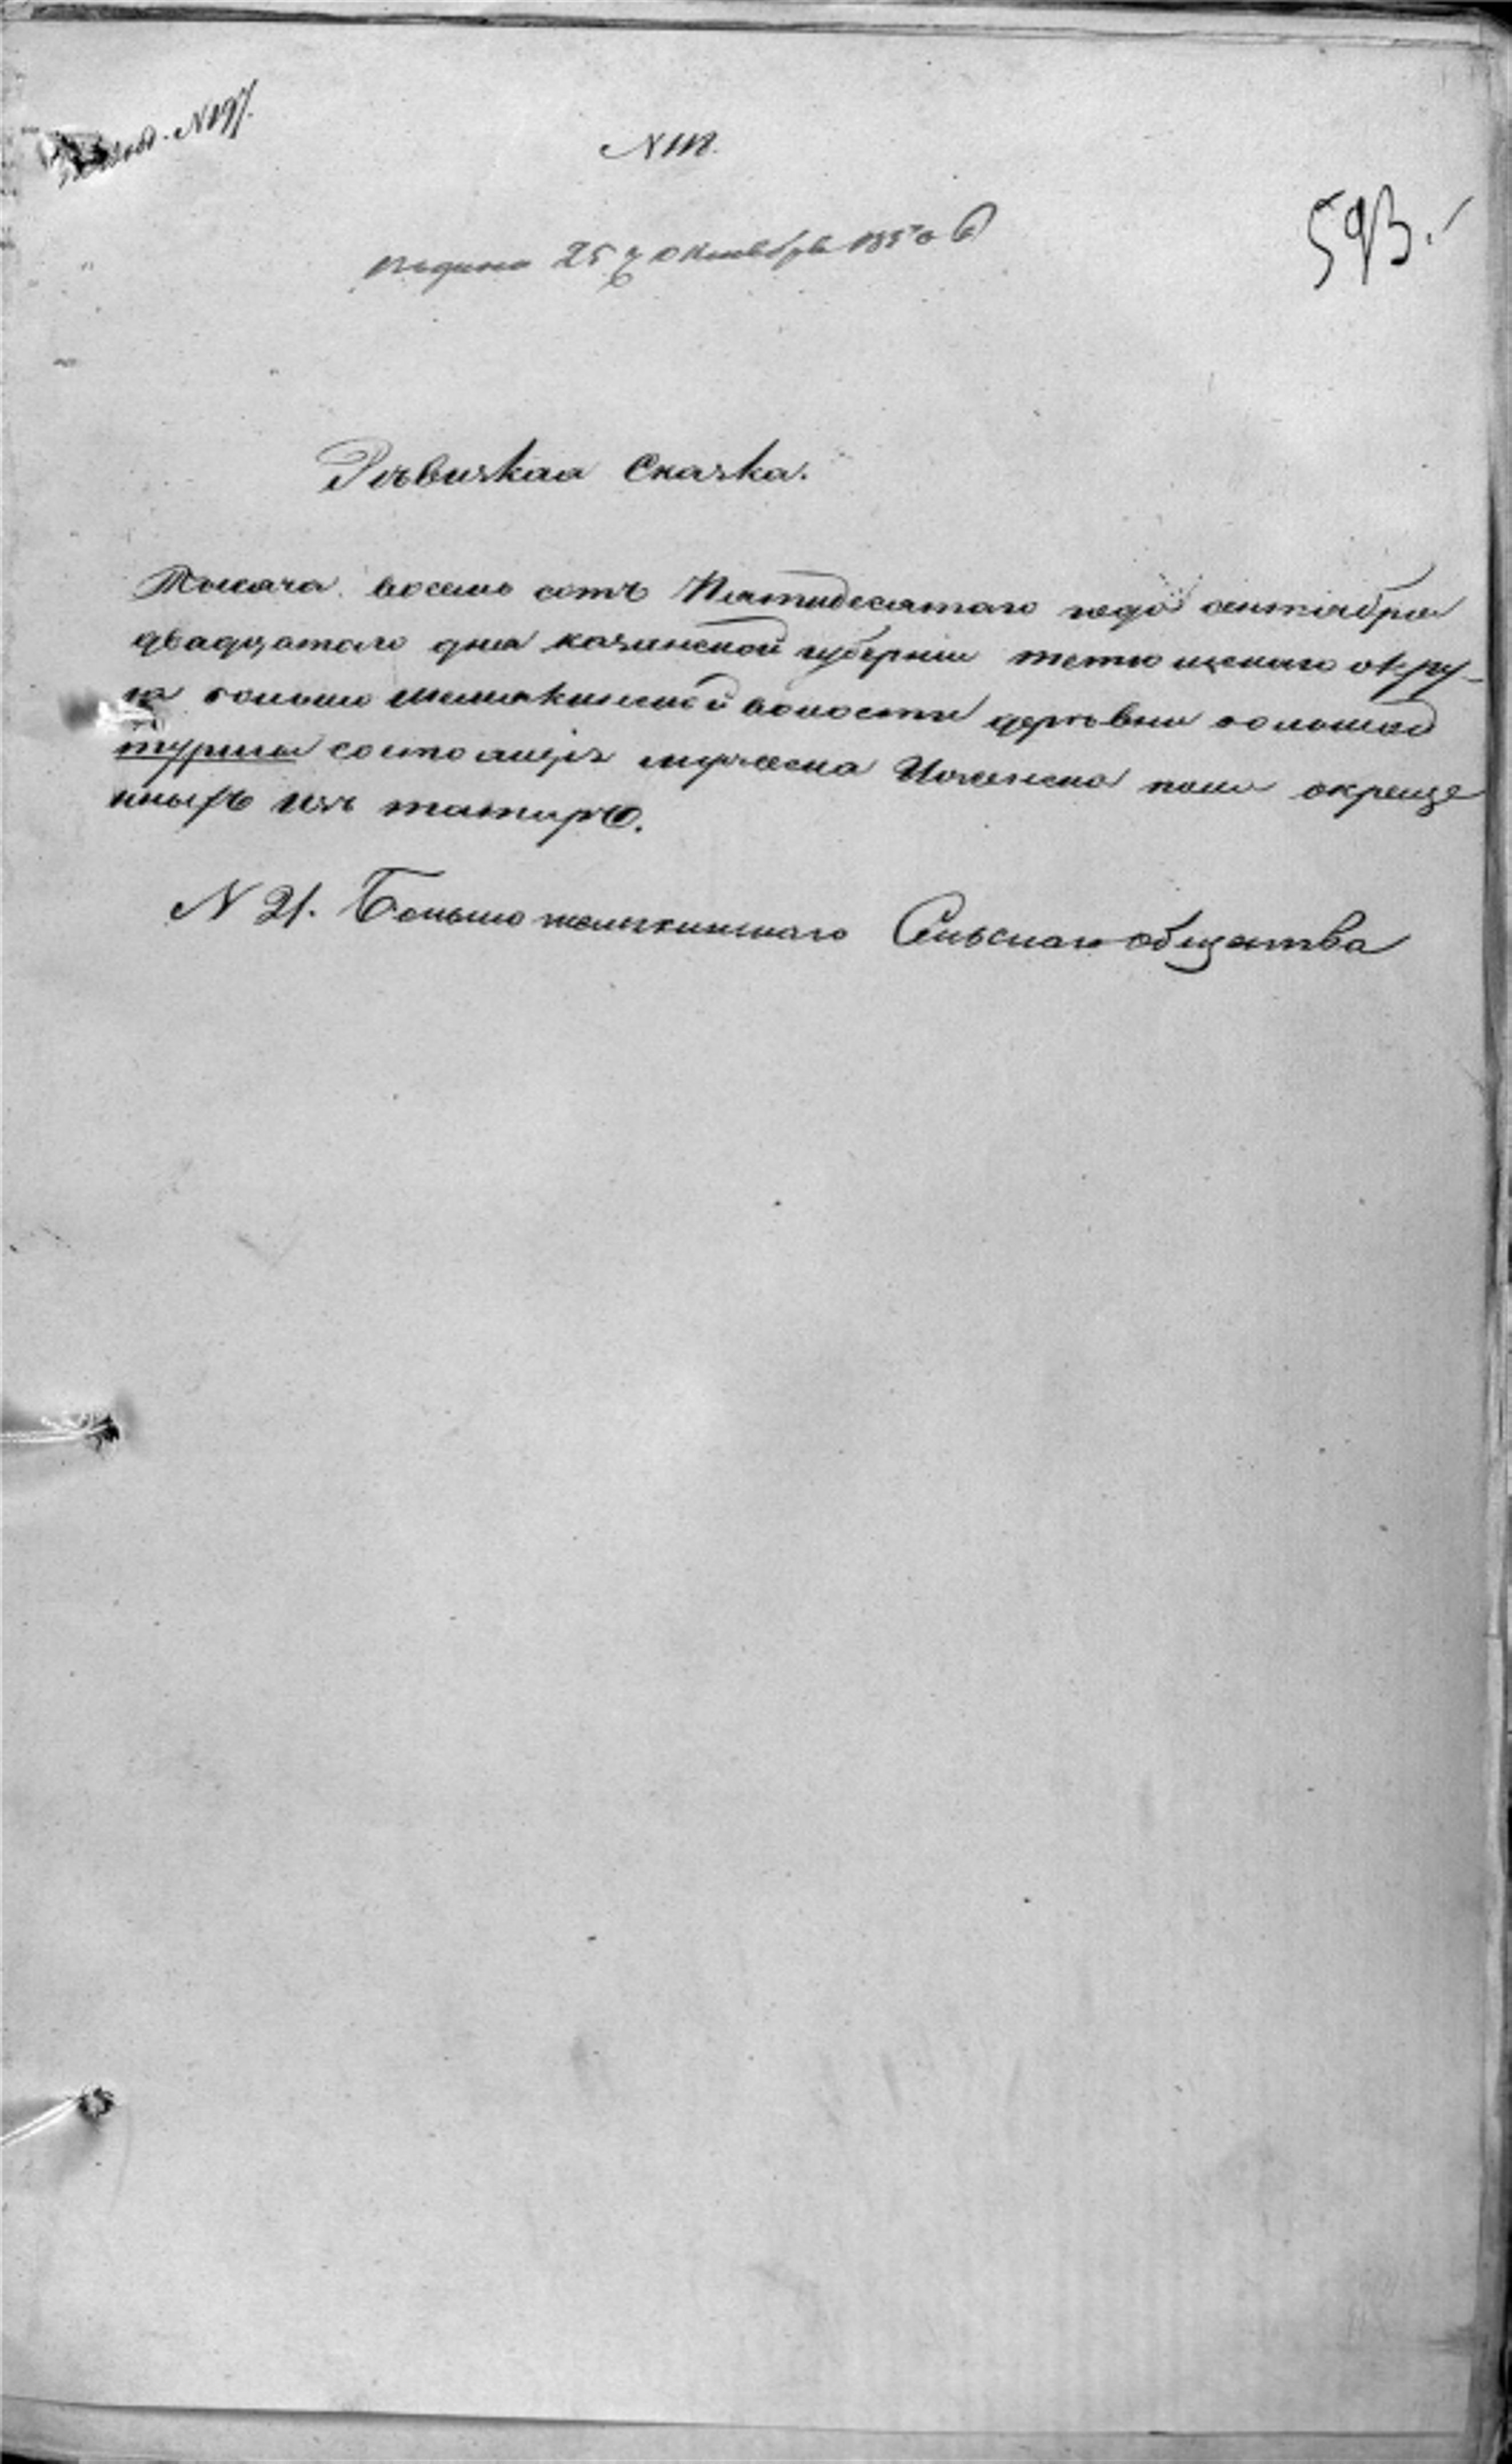 N 197.
N 112.
Подана 25 Октября 1850 г
593.
Ревизкая Сказка.
Тысяча восемь сотъ Пятидесятаго года сентября
двадцатаго дня казанской губерніи тетюшскаго окру-
га больше шемякинской волости деревни большой
турмы состоящихъ мужеска и женска пола окреще
нныхъ изъ татаръ.
N 21. Больше шемякинскаго Сельскаго общества